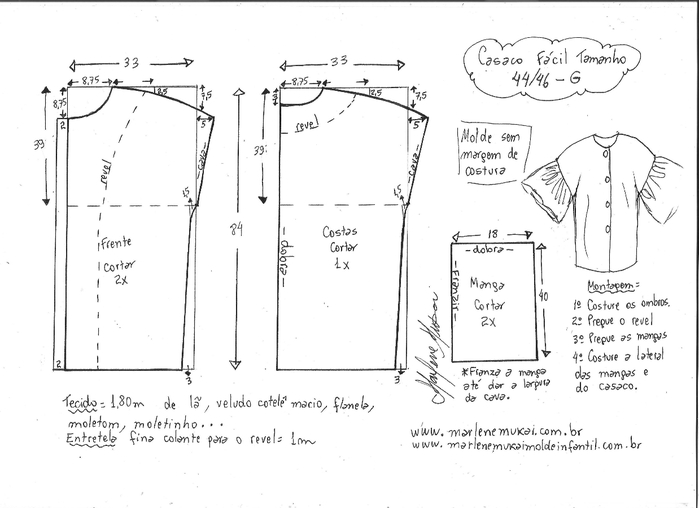 33
8,75
2,5
7,5
8,75
2
5
33
revel
-cava-
1,5
84
Frente
Cortar
2x
2
3
33
8,75
2,5
7,5
5
revel
33
-cava-
1,5
-dobra-
Costas
Cortar
1x
3
Casaco Fácil Tamanho
44/46 - G
Molde sem
margem de
costura
18
-dobra-
-Franzir-
Manga
Cortar
2x
40
*Franza a manga
até dar a largura
da cava.
Montagem=
1º Costure os ombros.
2º Pregue o revel
3º Pregue as mangas
4º Costure a lateral
das mangas e
do casaco.
Marlene Mukai
Tecido= 1,80m de lã, veludo cotelê macio, flanela,
moletom, moletinho...
Entretela fina colante para o revel= 1m
www.marlenemukai.com.br
www.marlenemukaimoldeinfantil.com.br